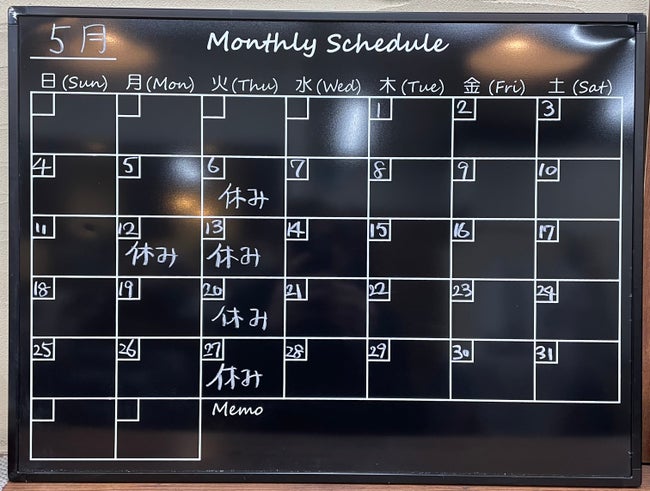 5月
Monthly Schedule
日(Sun) 月(Mon) 火(Thu) 水(Wed) 木(Tue) 金(Fri) 土(Sat)
1 2 3
4 5 6 7 8 9 10
休み
11 12 13 14 15 16 17
休み 休み
18 19 20 21 22 23 24
休み
25 26 27 28 29 30 31
休み
Memo